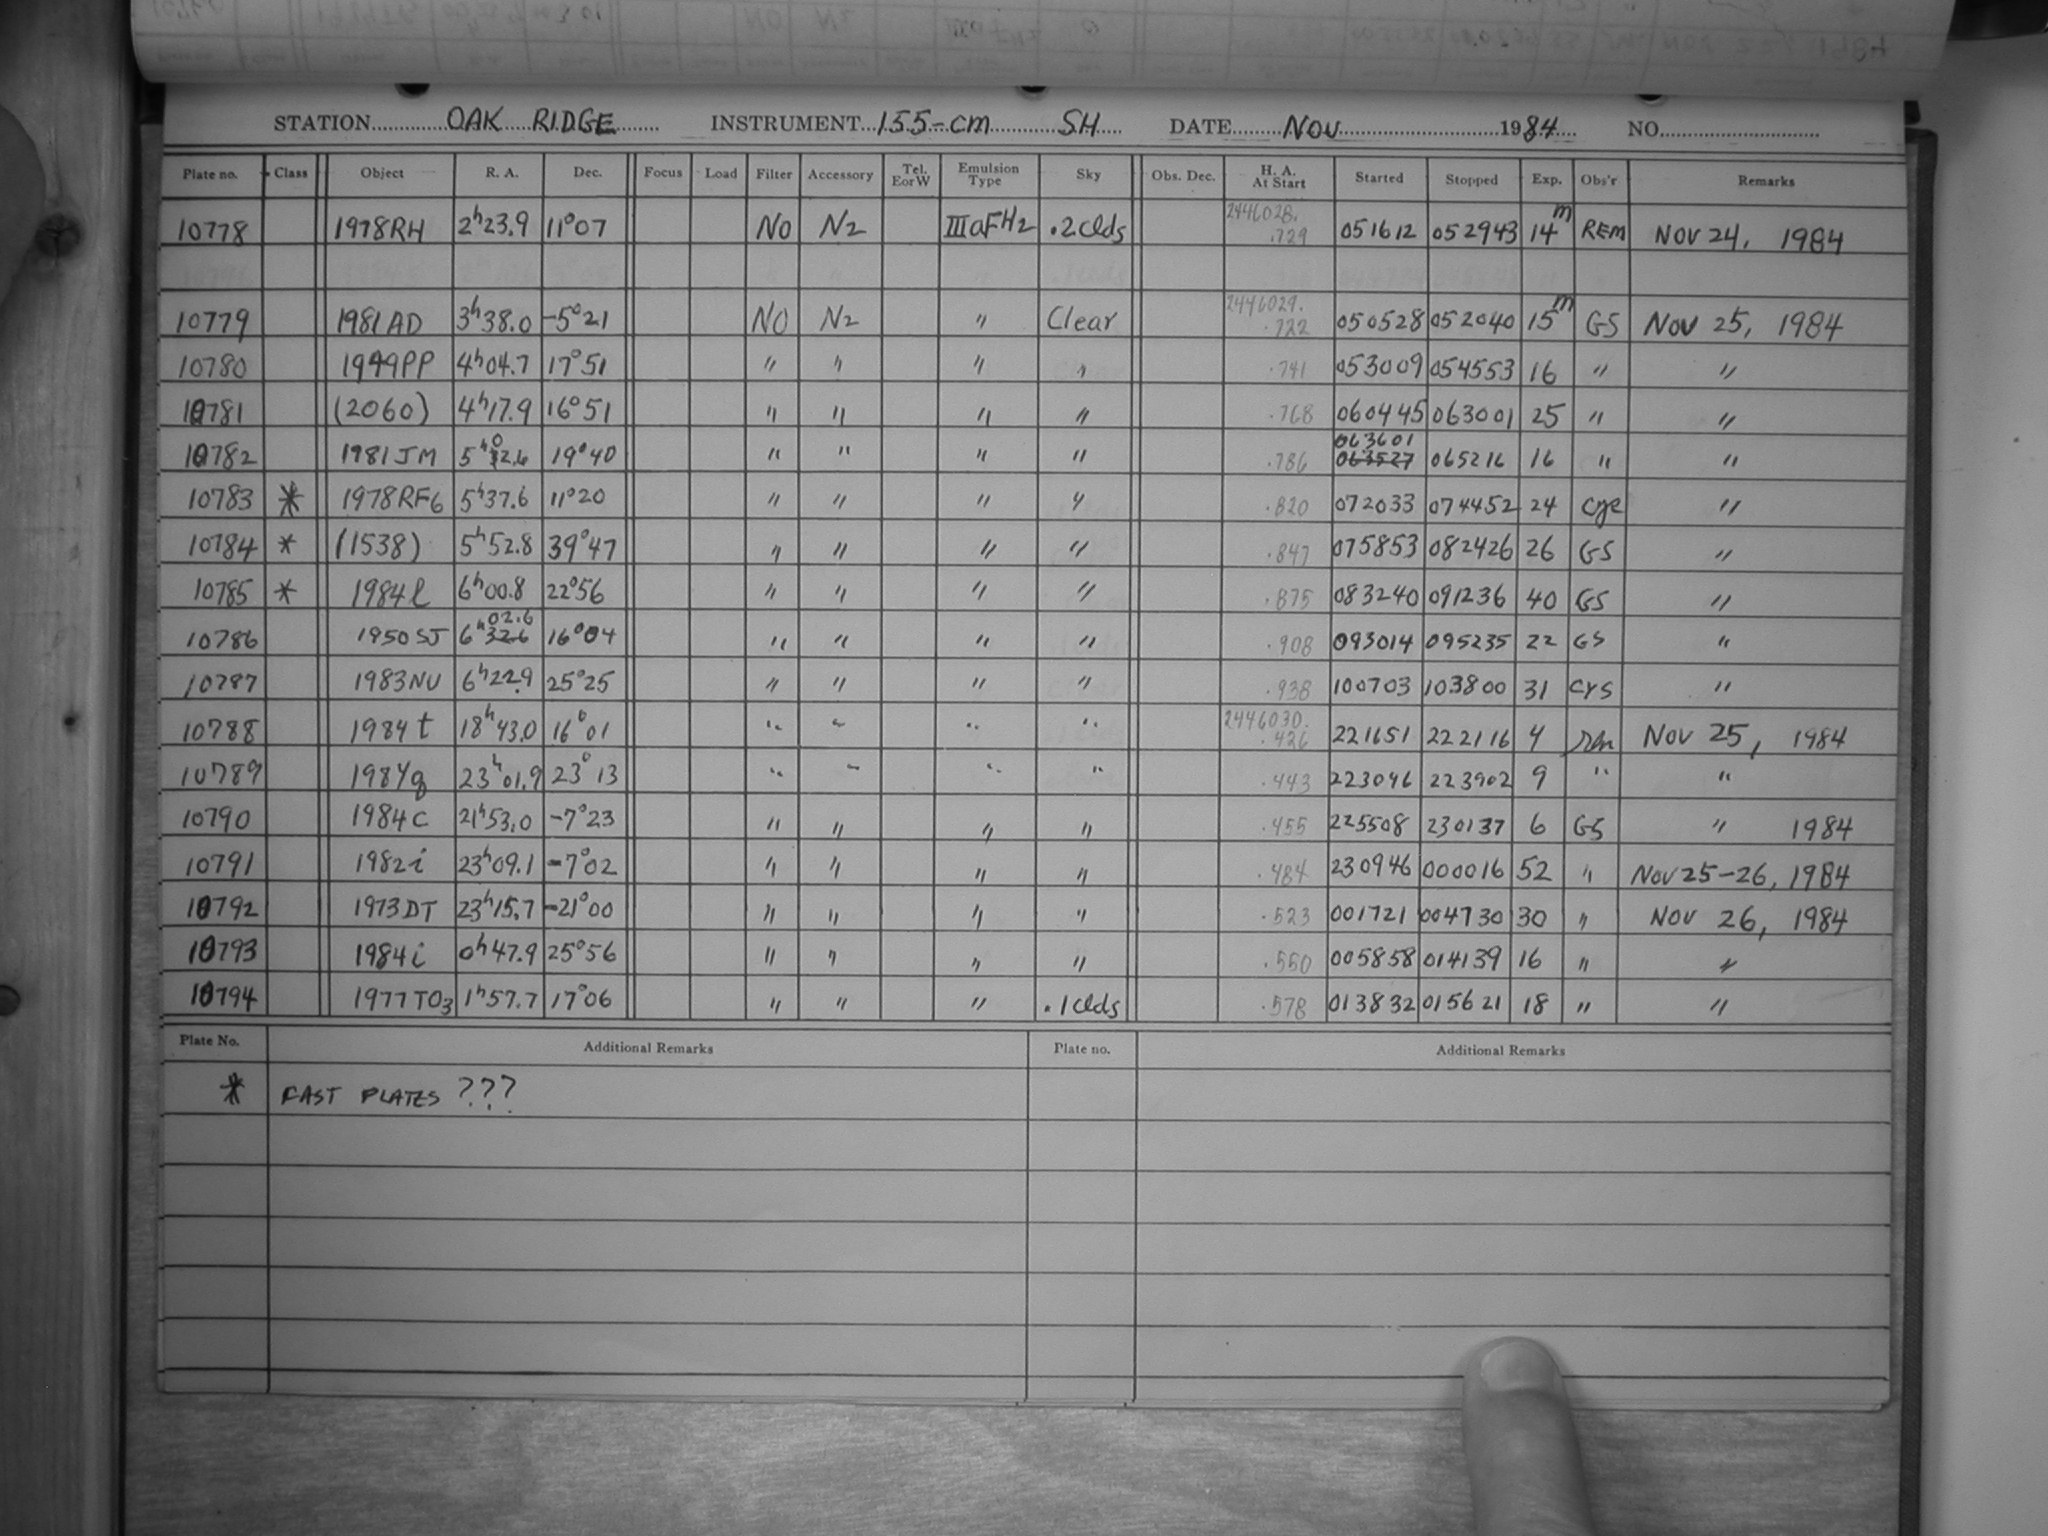 STATION OAK RIDGE INSTRUMENT 155-cm SH DATE NOV 1984 NO.
Plate no. Class Object R. A. Dec. Focus Load Filter Accessory Tel. E or W Emulsion Type Sky Obs. Dec. H. A. At Start Started Stopped Exp. Obs'r Remarks
10778 1978RH 2h23.9 11°07 NO N2 IIIaFH2 .2 clds 2446028. .729 051612 052943 14m REM NOV 24, 1984
10779 1981AD 3h38.0 -5°21 NO N2 " Clear 2446029. .722 050528 052040 15m GS Nov 25, 1984
10780 1949PP 4h04.7 17°51 " " " " .741 053009 054553 16 " "
10781 (2060) 4h17.9 16°51 " " " " .768 060445 063001 25 " "
10782 1981JM 5h02.6 19°40 " " " " .786 063601 063527 065216 16 " "
10783 * 1978RF6 5h37.6 11°20 " " " " .820 072033 074452 24 cys "
10784 * (1538) 5h52.8 39°47 " " " " .847 075853 082426 26 GS "
10785 * 1984l 6h00.8 22°56 " " " " .875 083240 091236 40 GS "
10786 1950SJ 6h32.6 02.6 16°04 " " " " .908 093014 095235 22 GS "
10787 1983NU 6h22.9 25°25 " " " " .938 100703 103800 31 CYS "
10788 1984t 18h43.0 16°01 " " " " 2446030. .426 221651 222116 4 Nov 25, 1984
10789 1984q 23h01.9 23°13 " " " " .443 223046 223902 9 " "
10790 1984c 21h53.0 -7°23 " " " " .455 225508 230137 6 GS " 1984
10791 1982i 23h09.1 -7°02 " " " " .484 230946 000016 52 " Nov 25-26, 1984
10792 1973DT 23h15.7 -21°00 " " " " .523 001721 004730 30 " Nov 26, 1984
10793 1984i 0h47.9 25°56 " " " " .550 005858 014139 16 " "
10794 1977TO3 1h57.7 17°06 " " " .1 clds .578 013832 015621 18 " "
Plate No. Additional Remarks Plate no. Additional Remarks
* FAST PLATES ???